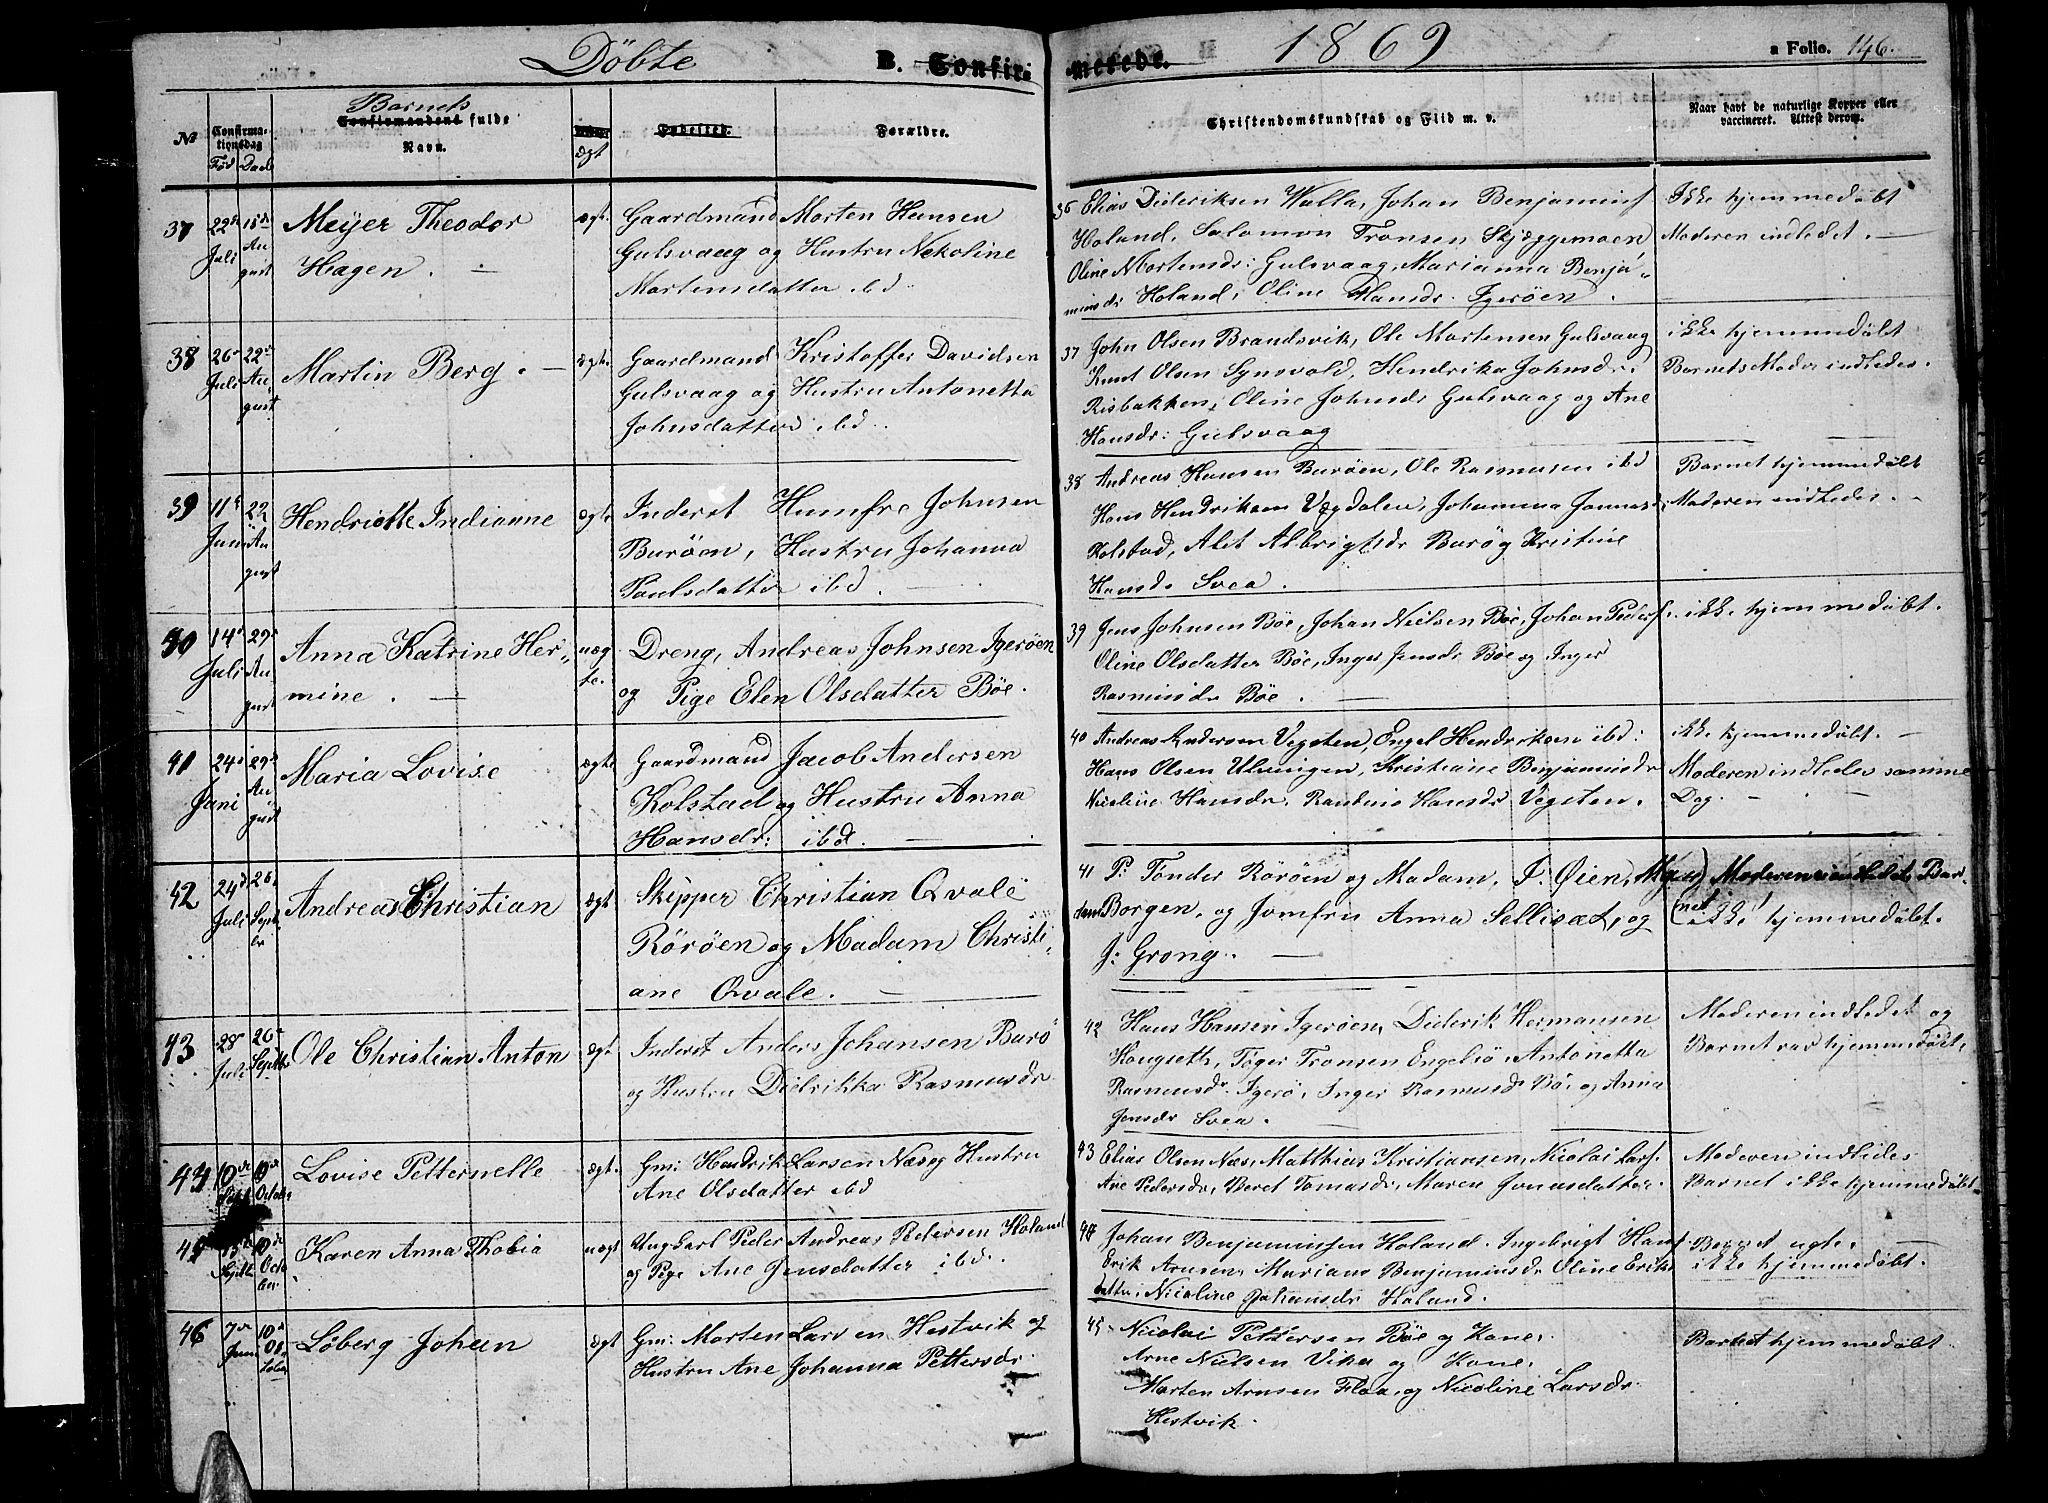 Döbte B. Confirmerede. 1869 a Folio. 146.
№ Confirmationsdag Født Daab Barnets Confirmandens fulde Navn. ægt Fødested. Forældre. Christendomskundskab og Flid m. v. Naar havt de naturlige Kopper eller vaccineret. Attest derom.
37 22de Juli 15de August Meyer Theodor Hagen. ægt.
Gaardmand Morten Hansen
Gulsvaag og Hustru Nekoline
Mortensdatter ibd.
36 Elias Dideriksen Walla, Johan Benjamins.
Holand, Salomon Tronsen Skjæggemoen
Oline Mortensdr: Gulsvaag, Marianna Benja-
minsdr Holand, Oline Hansdr. Igerøen.
Ikke hjemmedøbt
Moderen indledet. —
38 26 Juli 22de August Martin Berg. — ægte
Gaardmand Kristoffer Davidsen
Gulsvaag og Hustru Antonetta
Johnsdatter ibd.
37 John Olsen Brandsvik, Ole Mortensen Gulsvaag
Knut Olsen Synsvold, Hendrika Johnsdr.
Risbakken, Oline Johnsdr Gulsvaag og Ane
Hansdr: Gulsvaag
ikke hjemmedøbt
Barnets Moder indledes.
39 11te Juni 22 August Hendriette Indianne ægte
Inderst Humfre Johnsen
Burøen, Hustru Johanna
Paulsdatter ibd. —
38 Andreas Hansen Burøen, Ole Rasmusen ibd
Hans Hendriksen Vægdalen, Johanna Jonnasd.
Kolstad, Alet Albrigtsdr Burø og Kristine
Hansdr Svea.
Barnet hjemmedøbt
Moderen indledes. -
40 14de Juli 29de August Anna Katrine Her-
mine. — uægte.
Dreng, Andreas Johnsen Igerøen
og Pige Elen Olsdatter Böe.
39 Jens Johnsen Böe, Johan Nielsen Böe, Johan Peders.
Oline Olsdatter Böe, Inger Jensdr Böe og Inger
Rasmusdr Böe. —
ikke hjemmedøbt.
41 24de Juni 29de August Maria Lovise ægte
Gaardmand Jacob Andersen
Kolstad og Hustru Anna
Hansdr: ibd. —
40 Andreas Andersen Vegsten, Engel Hendriksen ibd:
Hans Olsen Ulvingen, Kristiane Benjaminsdr
Nicoline Hansdr, Hansdr Vegsten.
ikke hjemmedøbt. —
Moderen indledes samme
Dag. —
42 24de Juli 26 Septbr Andreas Christian ægt
Skipper Christian Qvale
Rörøen og Madam Christi-
ane Qvale. —
41 P. Tønder Rörøen og Madam, J. Øien, Ma-
dam Borgen, og Jomfru Anna Sellisæt, og
J. Grong. —
Moderen indledet, Bar-
net ikke hjemmedøbt.
43 28de Juli 26de Septbr Ole Christian Anton ægt
Inderst Anders Johansen Burö
og Hustru Didrikka Rasmusdr
42 Hans Hansen Igerøen, Diderik Hermansen
Hougseth, Töger Tronsen Engelsö, Antonetta
Rasmusdr. Igerö, Inger Rasmusdr Böe og Anna
Jensdr Svea.
Moderen indledet og
Barnet var hjemmedøbt.
44 10de Sept 10de October Lovise Petternelle ægt.
Gm: Hendrik Larsen Næs og Hustru
Ane Olsdatter ibd
43 Elias Olsen Næs, Matthias Kristiansen, Nicolai Lars.
Ane Pedersdr, Beret Tomasdr, Maren Jonasdatter.
Moderen indledes
Barnet ikke hjemmedøbt.
45 15de Septbr 10de October Karen Anna Thobia uægt
Ungkarl Peder Andreas Pedersen Holand
og Pige Ane Jensdatter ibd.
44 Johan Benjaminsen Holand. Ingebrigt Hans.
Erik Arnsen, Mariane Benjaminsdr Oline Eriks
datter, Nicoline Johansdr Holand.
Barnet ugte. —
ikke hjemmedøbt.
46 7de Juni 10de October Löberg Johan ægt
Gm: Morten Larsen Hestvik og
Hustru Ane Johanna Pettersdr.
45 Nicolai Pettersen Böe og Kone,
Arne Nielsen Vika og Kone,
Morten Arnsen Floa, og Nicoline Larsdr
Hestvik.
Barnet hjemmedøbt.